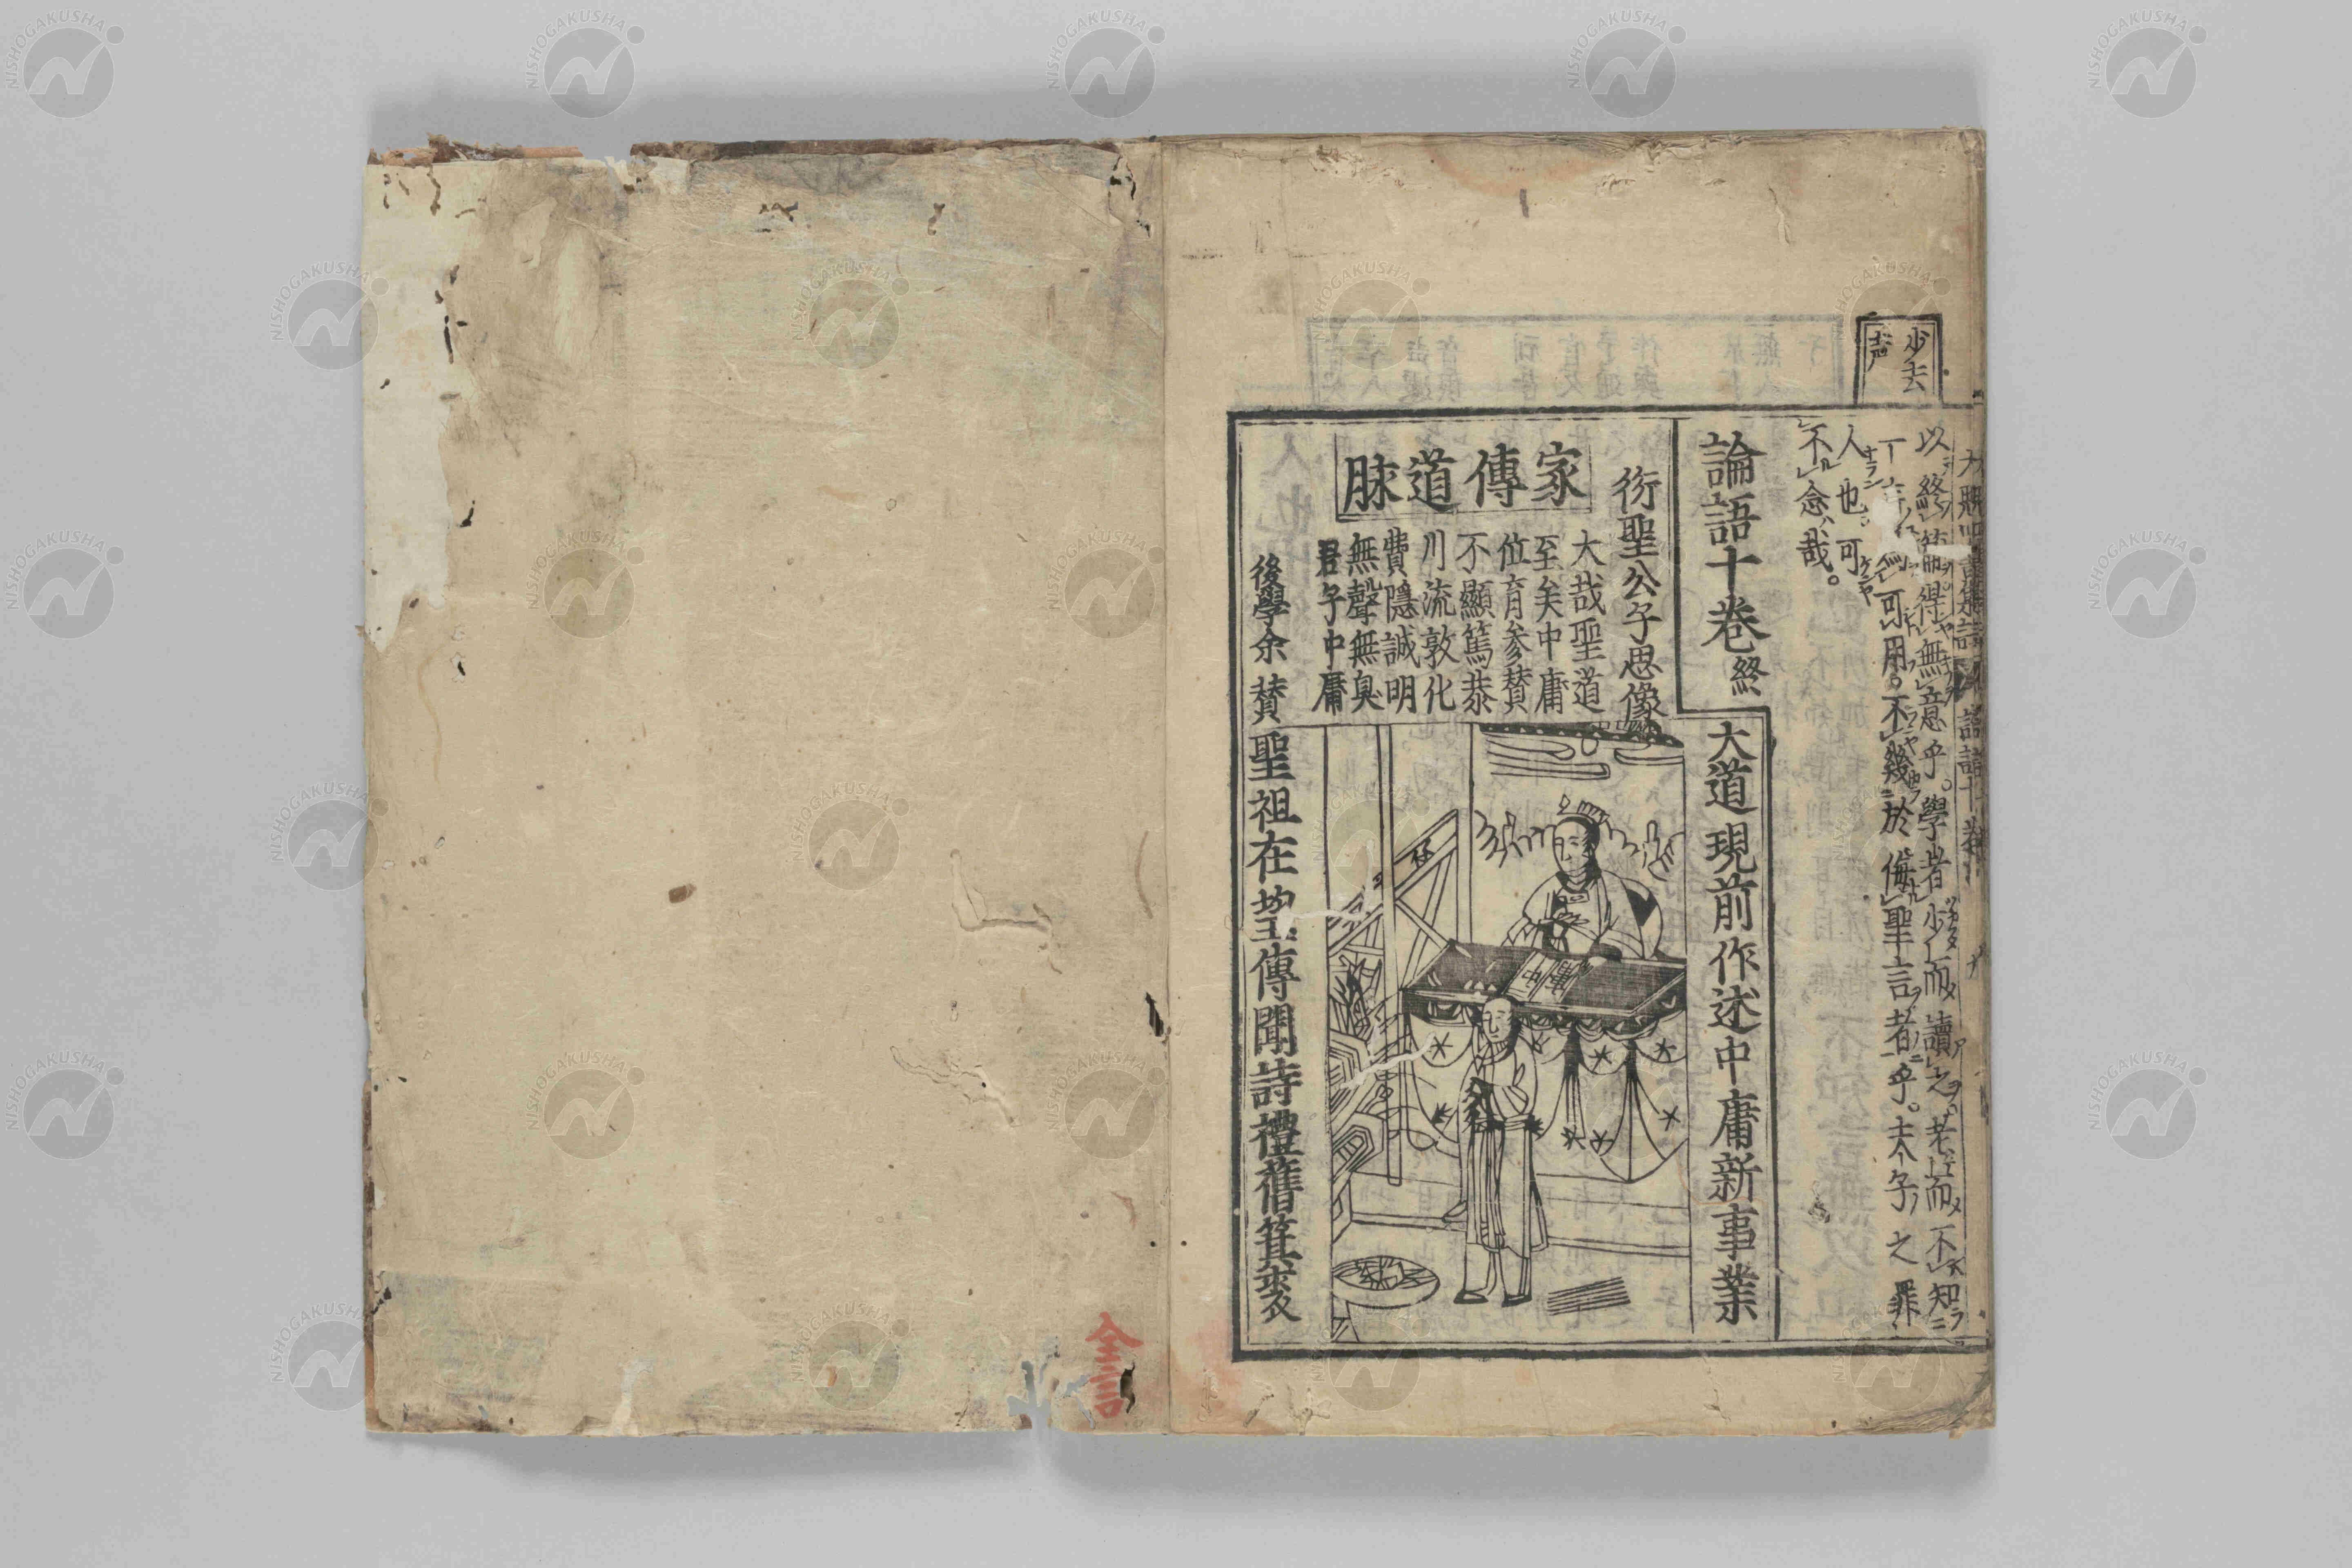 少去
声
以終篇得無意乎。學者少而讀之。老而不知
一言為可用。不幾於侮聖言者乎。夫子之罪
人也。可
不念哉。
論語十卷終
大道現前作述中庸新事業
衍聖公子思像
家傳道脉
大哉聖道
至矣中庸
位育參賛
不顯篤恭
川流敦化
費隱誠明
無聲無臭
君子中庸
後學余 賛
聖祖在堂傳聞詩禮舊箕裘
中庸
全言
NISHOGAKUSHA